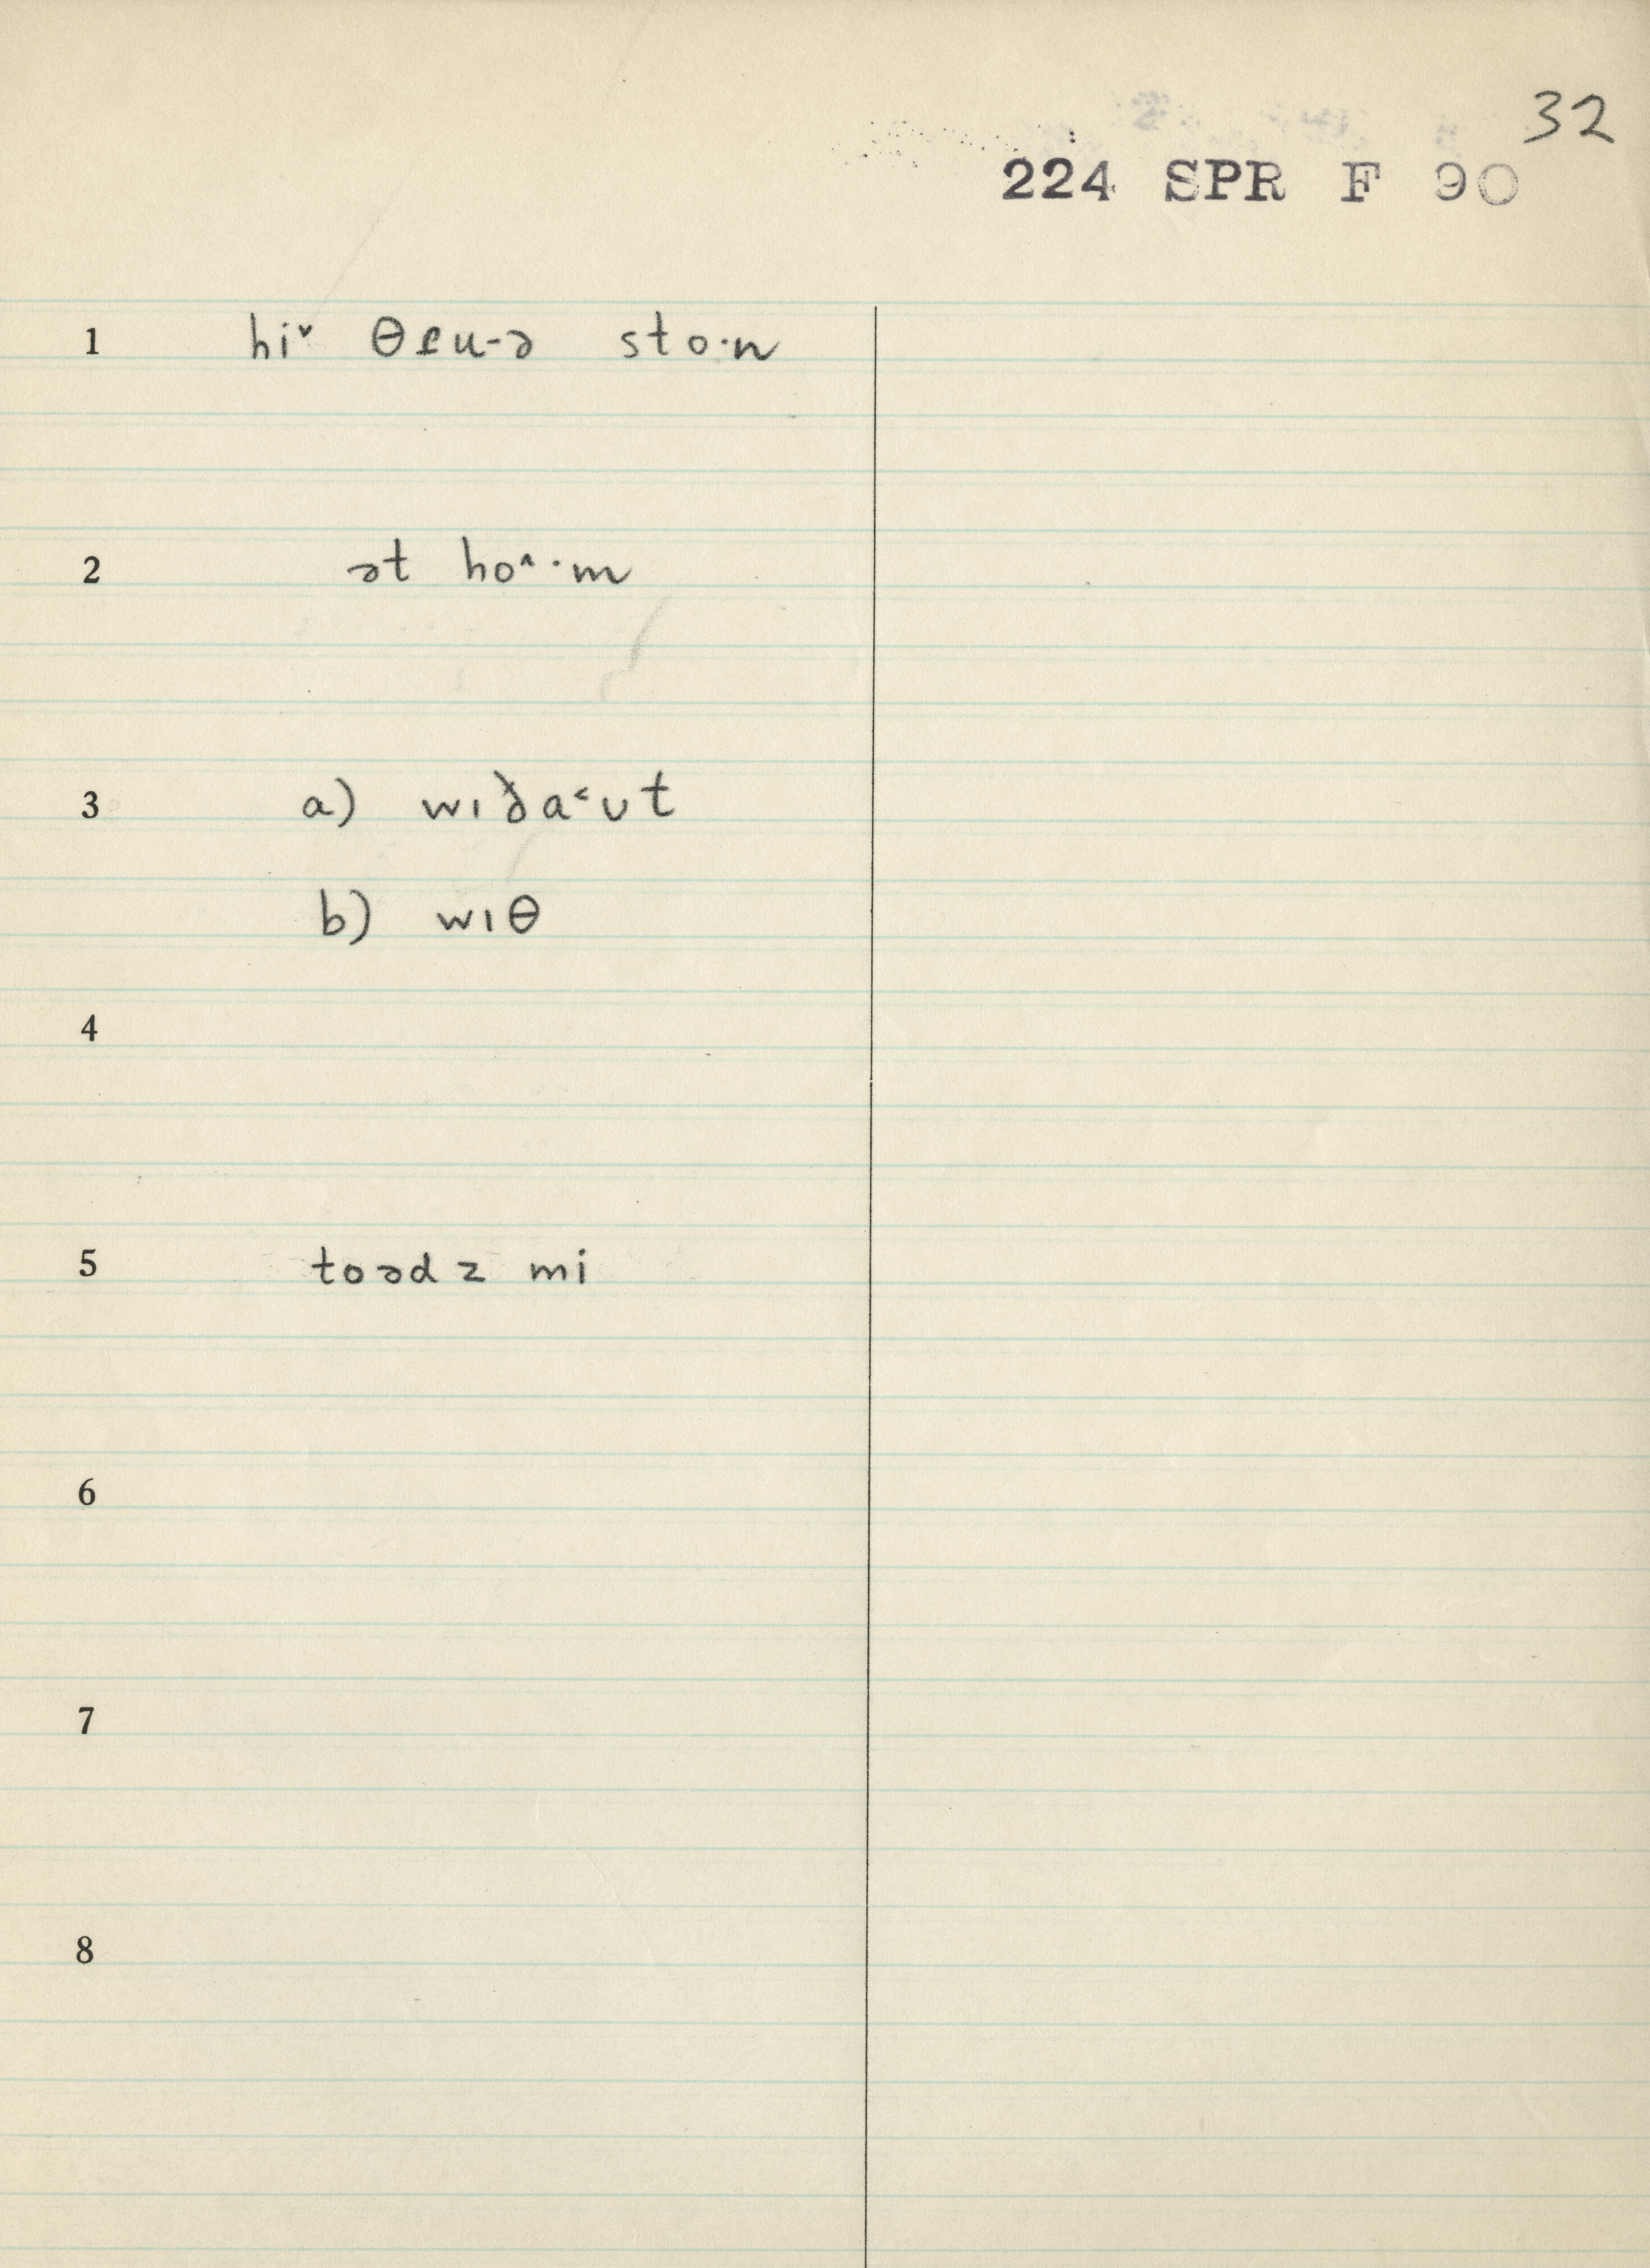 32
224 SPR F 90
1 hi˅ θɹu-ə sto·n
2 ət ho˄·m
3 a) wıða˂ʊt
b) wıθ
4
5 toədz mi
6
7
8